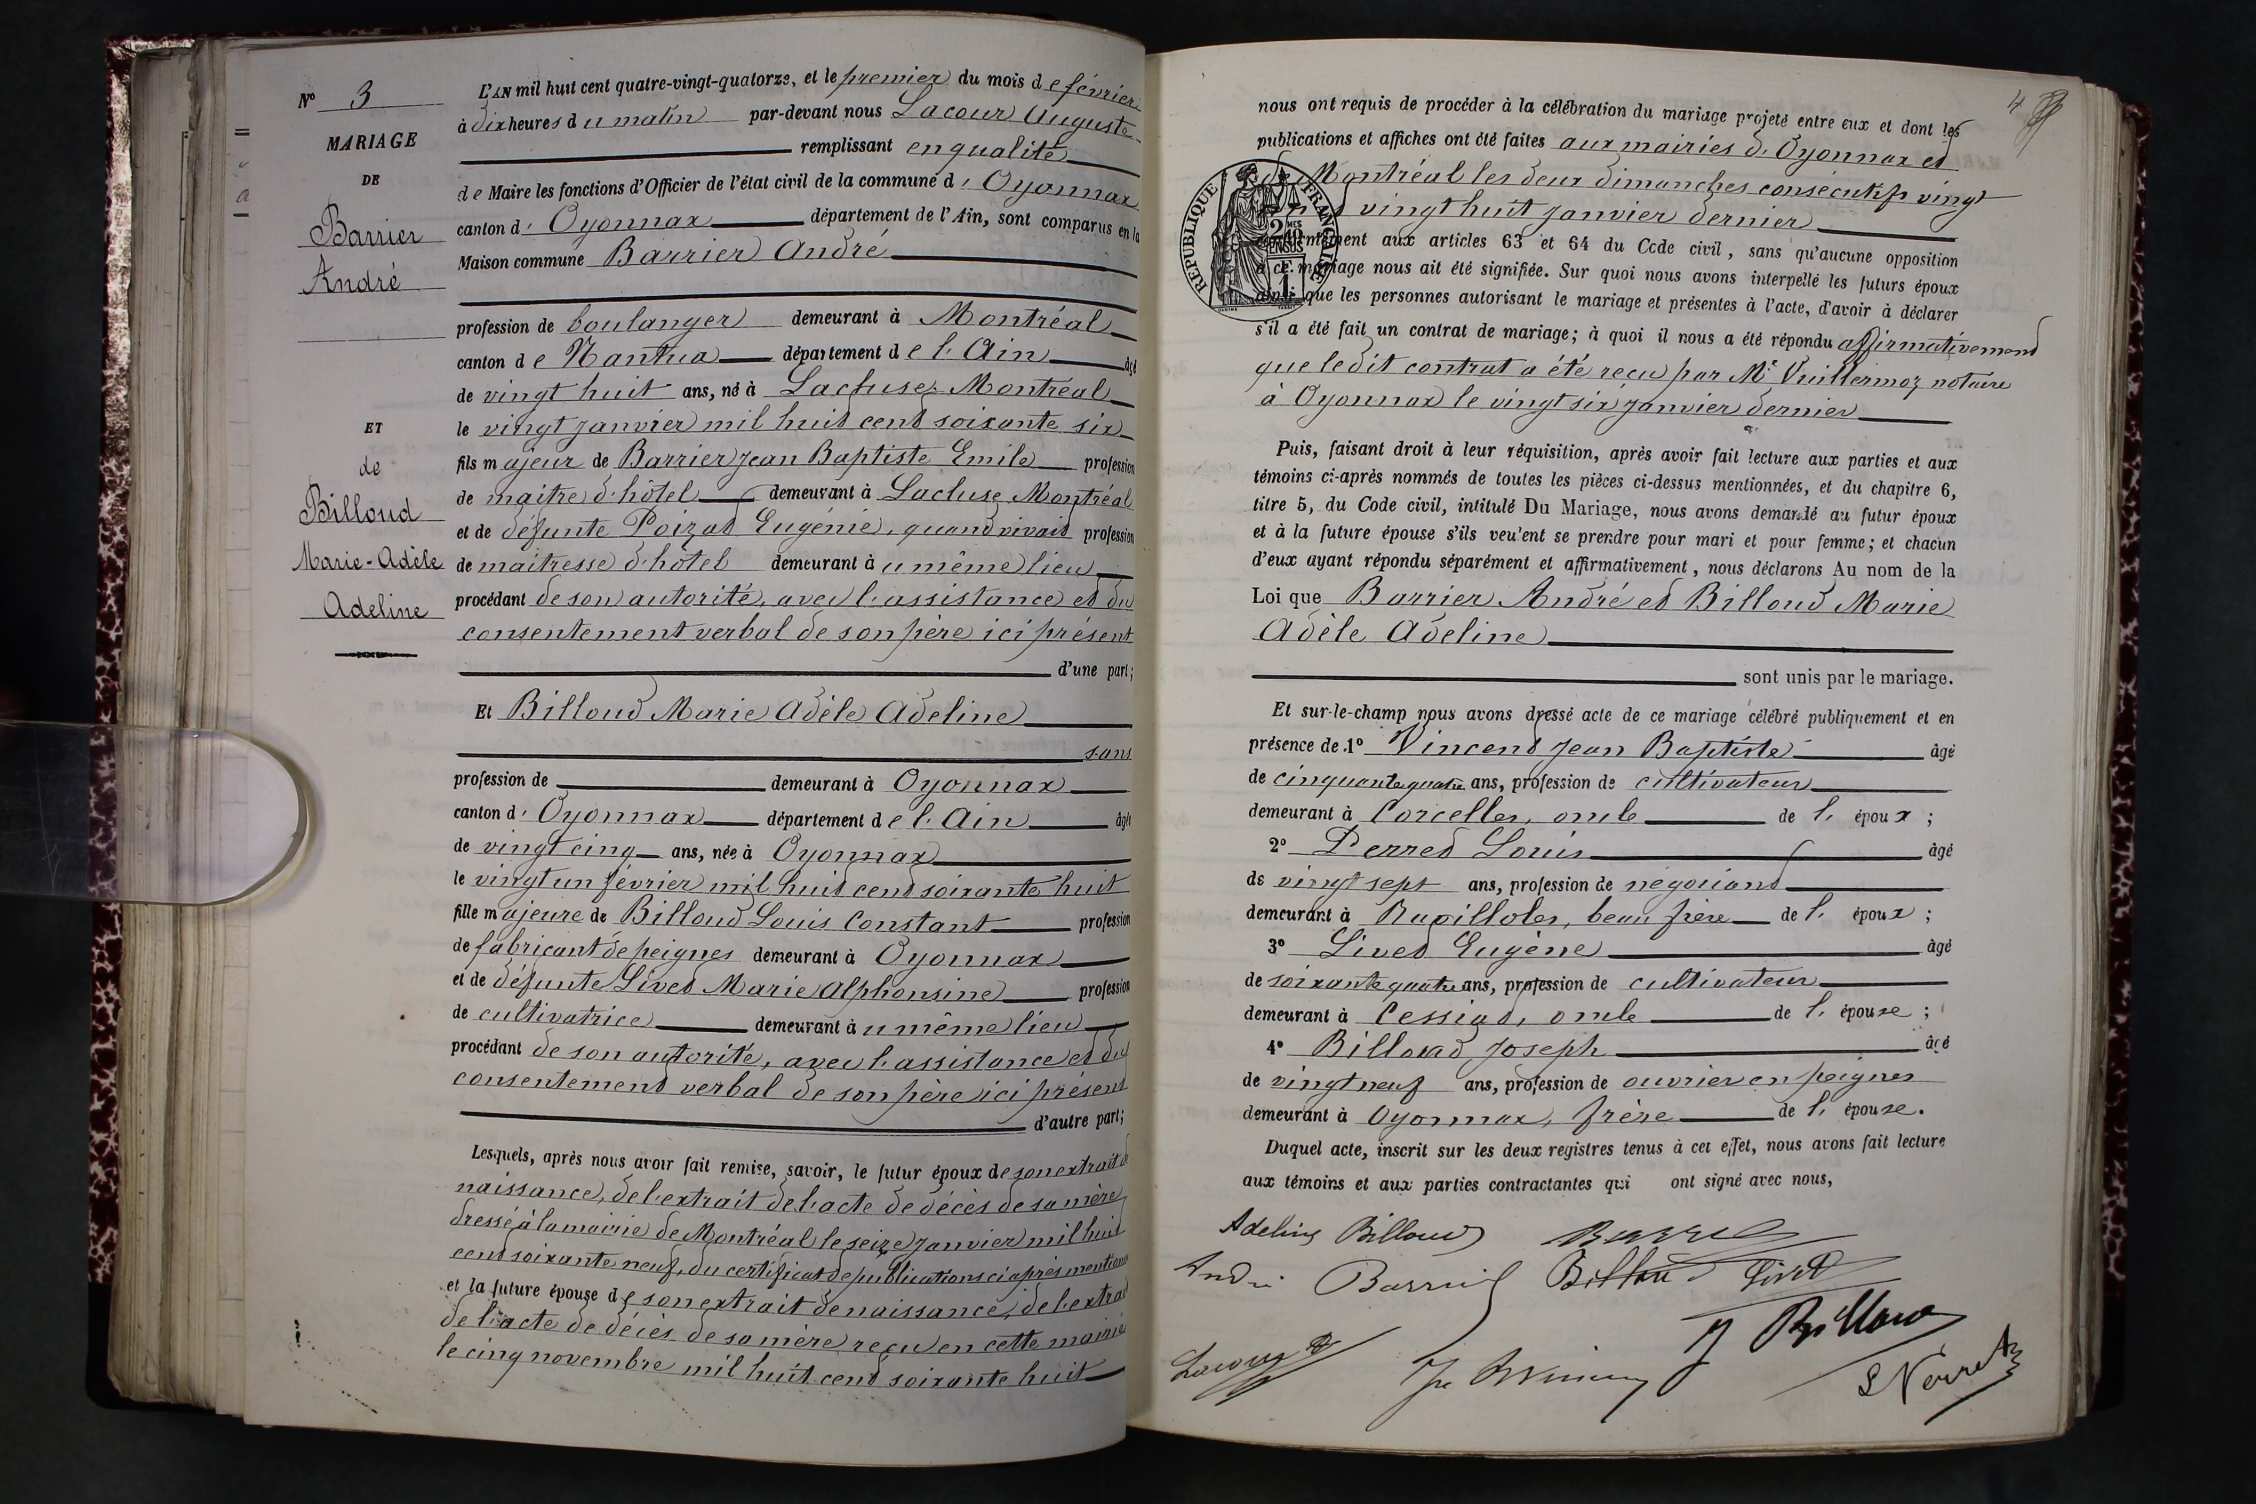 N° 3
MARIAGE
DE
Barrier
André
ET
de
Billoud
Marie-Adèle
Adeline
L'AN mil huit cent quatre-vingt-quatorze, et le premier du mois de février
à dix heures du matin par-devant nous Lacour Auguste
remplissant en qualité
de Maire les fonctions d'Officier de l'état civil de la commune d'Oyonnax
canton d'Oyonnax département de l'Ain, sont comparus en la
Maison commune Barrier André
profession de boulanger demeurant à Montréal
canton de Nantua département de l'Ain âgé
de vingt huit ans, né à Lacluse, Montréal
le vingt janvier mil huit cent soixante six
fils majeur de Barrier Jean Baptiste Emile profession
de maître d'hôtel demeurant à Lacluse, Montréal
et de défunte Poizat Eugénie, quand vivait profession
de maîtresse d'hôtel demeurant au même lieu
procédant de son autorité, avec l'assistance et du
consentement verbal de son père ici présent
d'une part;
Et Billoud Marie Adèle Adeline
sans
profession de demeurant à Oyonnax
canton d'Oyonnax département de l'Ain âgée
de vingt cinq ans, née à Oyonnax
le vingt un février mil huit cent soixante huit
fille majeure de Billoud Louis Constant profession
de fabricant de peignes demeurant à Oyonnax
et de défunte Livet Marie Alphonsine profession
de cultivatrice demeurant au même lieu
procédant de son autorité, avec l'assistance et du
consentement verbal de son père ici présent
d'autre part;
Lesquels, après nous avoir fait remise, savoir, le futur époux de son extrait de
naissance, de l'extrait de l'acte de décès de sa mère
dressé à la mairie de Montréal le seize janvier mil huit
cent soixante neuf, du certificat de publications ci après mentionné
et la future épouse de son extrait de naissance, de l'extrait
de l'acte de décès de sa mère reçu en cette mairie
le cinq novembre mil huit cent soixante huit
4
nous ont requis de procéder à la célébration du mariage projeté entre eux et dont les
publications et affiches ont été faites aux mairies d'Oyonnax et
de Montréal les deux dimanches consécutifs vingt
vingt huit janvier dernier
REPUBLIQUE FRANÇAISE
conformément aux articles 63 et 64 du Code civil, sans qu'aucune opposition
à ce mariage nous ait été signifiée. Sur quoi nous avons interpellé les futurs époux
ainsi que les personnes autorisant le mariage et présentes à l'acte, d'avoir à déclarer
s'il a été fait un contrat de mariage; à quoi il nous a été répondu affirmativement
que ledit contrat a été reçu par Me Vuillermoz notaire
à Oyonnax le vingt six janvier dernier
Puis, faisant droit à leur réquisition, après avoir fait lecture aux parties et aux
témoins ci-après nommés de toutes les pièces ci-dessus mentionnées, et du chapitre 6,
titre 5, du Code civil, intitulé Du Mariage, nous avons demandé au futur époux
et à la future épouse s'ils veulent se prendre pour mari et pour femme; et chacun
d'eux ayant répondu séparément et affirmativement, nous déclarons Au nom de la
Loi que Barrier André et Billoud Marie
Adèle Adeline
sont unis par le mariage.
Et sur-le-champ nous avons dressé acte de ce mariage célébré publiquement et en
présence de 1° Vincent Jean Baptiste âgé
de cinquante quatre ans, profession de cultivateur
demeurant à Corcelles, oncle de l'époux;
2° Perret Louis âgé
de vingt sept ans, profession de négociant
demeurant à beau frère de l'époux;
3° Livet Eugène âgé
de soixante quatre ans, profession de cultivateur
demeurant à Cessiat, oncle de l'épouse;
4° Billoud Joseph âgé
de vingt neuf ans, profession de ouvrier en peignes
demeurant à Oyonnax, frère de l'épouse.
Duquel acte, inscrit sur les deux registres tenus à cet effet, nous avons fait lecture
aux témoins et aux parties contractantes qui ont signé avec nous,
Adeline Billoud
André Barrier Billoud Livet
J Billoud
Lacour